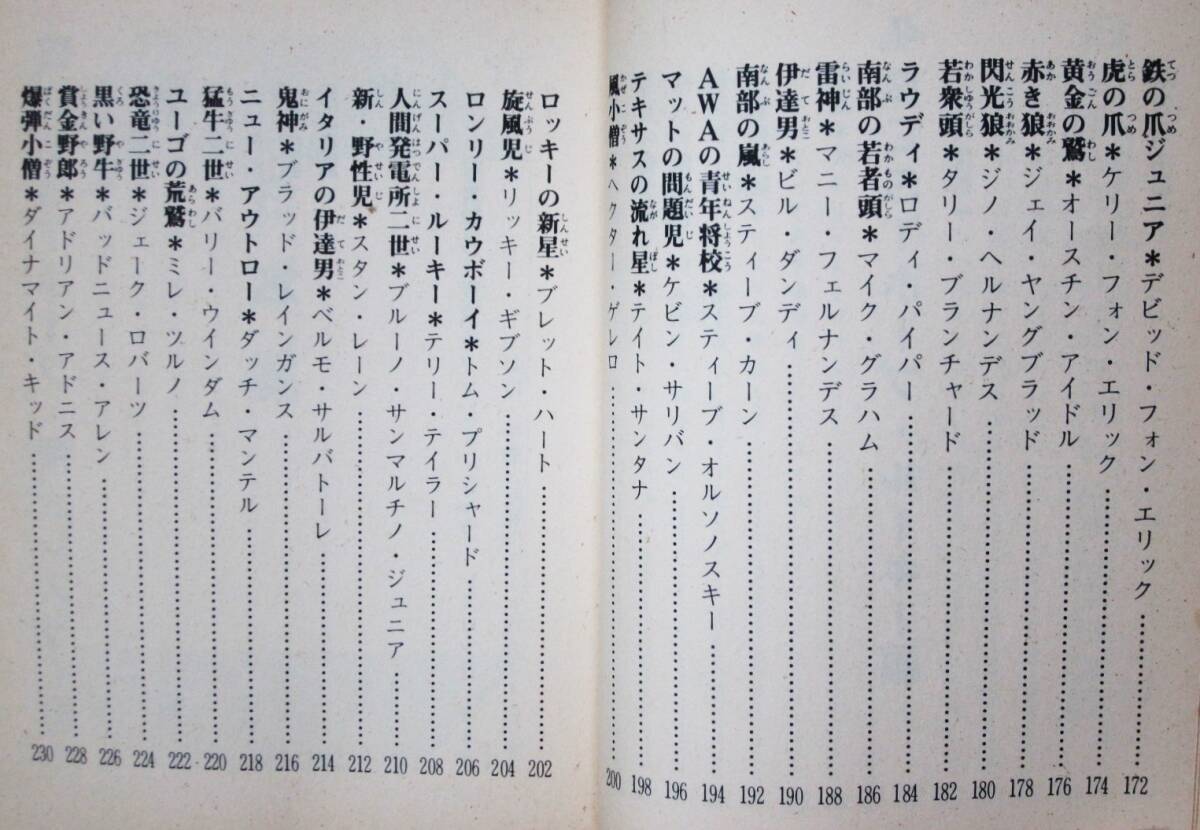 鉄の爪ジュニア＊デビッド・フォン・エリック……172
虎の爪＊ケリー・フォン・エリック……174
黄金の鷲＊オースチン・アイドル……176
赤き狼＊ジェイ・ヤングブラッド……178
閃光狼＊ジノ・ヘルナンデス……180
若衆頭＊タリー・ブランチャード……182
ラウディ＊ロディ・パイパー……184
南部の若者頭＊マイク・グラハム……186
雷神＊マニー・フェルナンデス……188
伊達男＊ビル・ダンディ……190
南部の嵐＊スティーブ・カーン……192
AWAの青年将校＊スティーブ・オルソノスキー……194
マットの問題児＊ケビン・サリバン……196
テキサスの流れ星＊テイト・サンタナ……198
風小僧＊ヘクター・ゲレロ……200
ロッキーの新星＊ブレット・ハート……202
旋風児＊リッキー・ギブソン……204
ロンリー・カウボーイ＊トム・プリシャード……206
スーパー・ルーキー＊テリー・テイラー……208
人間発電所二世＊ブルーノ・サンマルチノ・ジュニア……210
新・野性児＊スタン・レーン……212
イタリアの伊達男＊ベルモ・サルバトーレ……214
鬼神＊ブラッド・レインガンス……216
ニュー・アウトロー＊ダッチ・マンテル……218
猛牛二世＊バリー・ウインダム……220
ユーゴの荒鷲＊ミレ・ツルノ……222
恐竜二世＊ジェーク・ロバーツ……224
黒い野牛＊バッドニュース・アレン……226
賞金野郎＊アドリアン・アドニス……228
爆弾小僧＊ダイナマイト・キッド……230